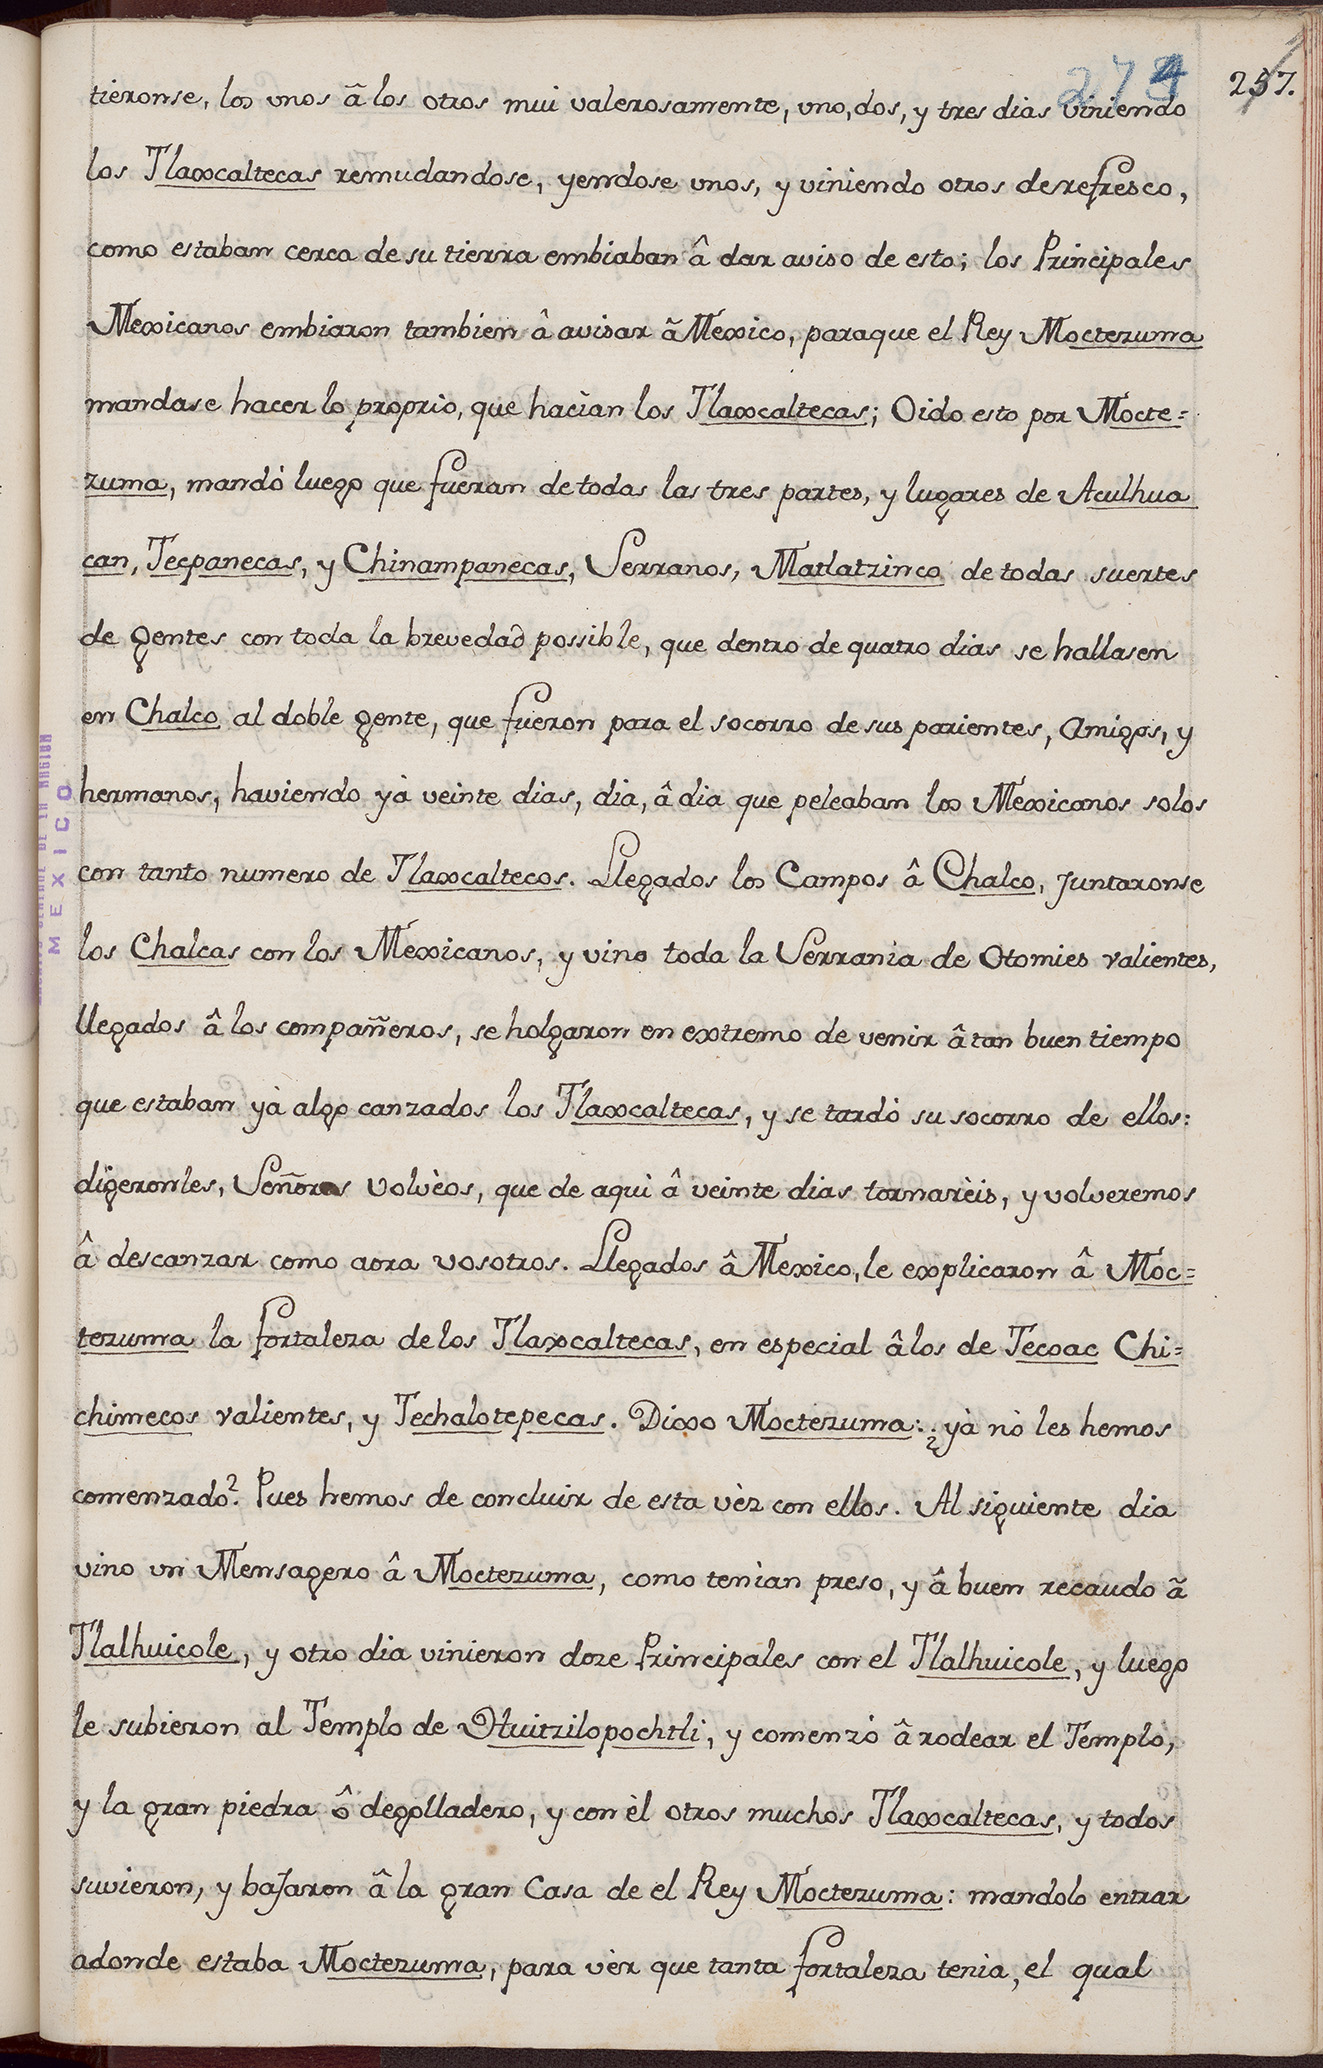 274 257.
tieronse, los unos â los otros mui valerosamente, uno, dos, y tres dias viniendo
los Tlaxcaltecas remudandose, yendose unos, y viniendo otros de refresco,
como estaban cerca de su tierra embiaban â dar aviso de esto; los Principales
Mexicanos embiaron tambien â avisar â Mexico, paraque el Rey Moctezuma
mandase hacer lo proprio, que hacìan los Tlaxcaltecas; Oido esto por Mocte=
zuma, mandò luego que fueran de todas las tres partes, y lugares de Aculhua
can, Tecpanecas, y Chinampanecas, Serranos, Matlatzinco de todas suertes
de gentes con toda la brevedad possible, que dentro de quatro dias se hallasen
en Chalco al doble gente, que fueron para el socorro de sus parientes, Amigos, y
hermanos, haviendo yà veinte dias, dia, â dia que peleaban los Mexicanos solos
con tanto numero de Tlaxcaltecos. Llegados los Campos â Chalco, Juntaronse
los Chalcas con los Mexicanos, y vino toda la Serranìa de Otomies valientes,
llegados â los compañeros, se holgaron en extremo de venir â tan buen tiempo
que estaban yà algo canzados los Tlaxcaltecas, y se tardò su socorro de ellos:
digeronles, Señores Volvèos, que de aqui â veinte dias tornarèis, y volveremos
â descanzar como aora vosotros. Llegados â Mexico, le explicaron â Moc=
tezuma la fortaleza de los Tlaxcaltecas, en especial â los de Tecoac Chi=
chimecos valientes, y Techalotepecas. Dixo Moctezuma: ¿yà nò les hemos
comenzado? Pues hemos de concluir de esta vèz con ellos. Al siguiente dia
vino un Mensagero â Moctezuma, como tenìan preso, y â buen recaudo â
Tlalhuicole, y otro dia vinieron doze Principales con el Tlalhuicole, y luego
le subieron al Templo de Huitzilopochtli, y comenzò â rodear el Templo,
y la gran piedra ô degolladero, y con èl otros muchos Tlaxcaltecas, y todos
suvieron, y baJaron â la gran Casa de el Rey Moctezuma: mandolo entrar
adonde estaba Moctezuma, para vèr que tanta fortaleza tenia, el qual
MEXICO